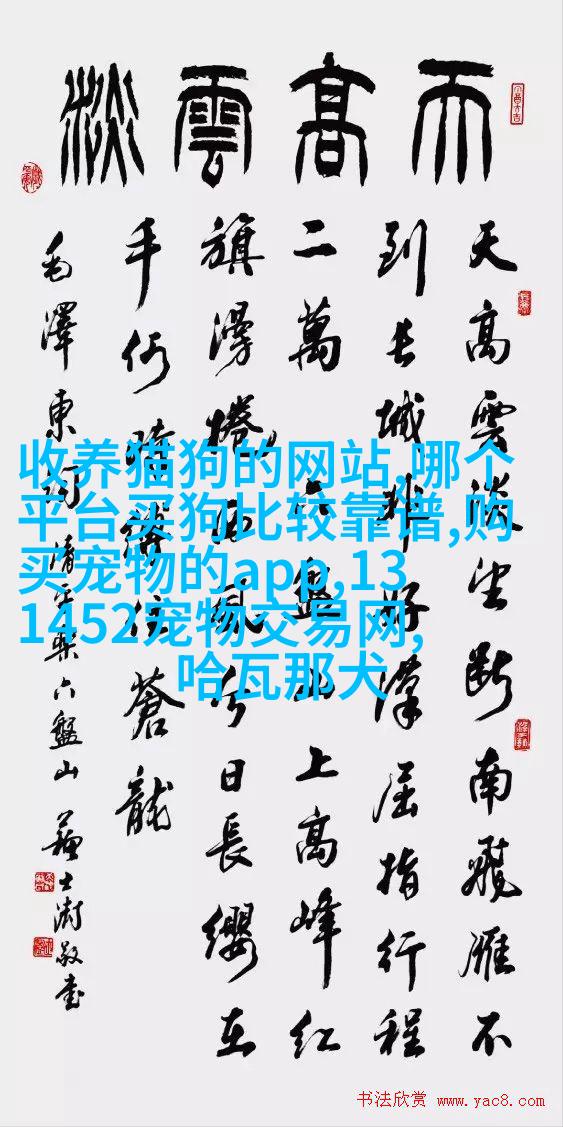 天高雲淡
天高雲淡望斷南飛雁不
到長城非好漢屈指行程
二萬六盤山上高峰紅
旗漫捲西風今日長纓在
手何時縛住蒼龍
毛澤東詞清平樂六盤山 蘇士澍敬書
收养猫狗的网站,哪个
平台买狗比较靠谱,购
买宠物的app,13
1452宠物交易网,
哈瓦那犬
书法欣赏 www.yac8.com